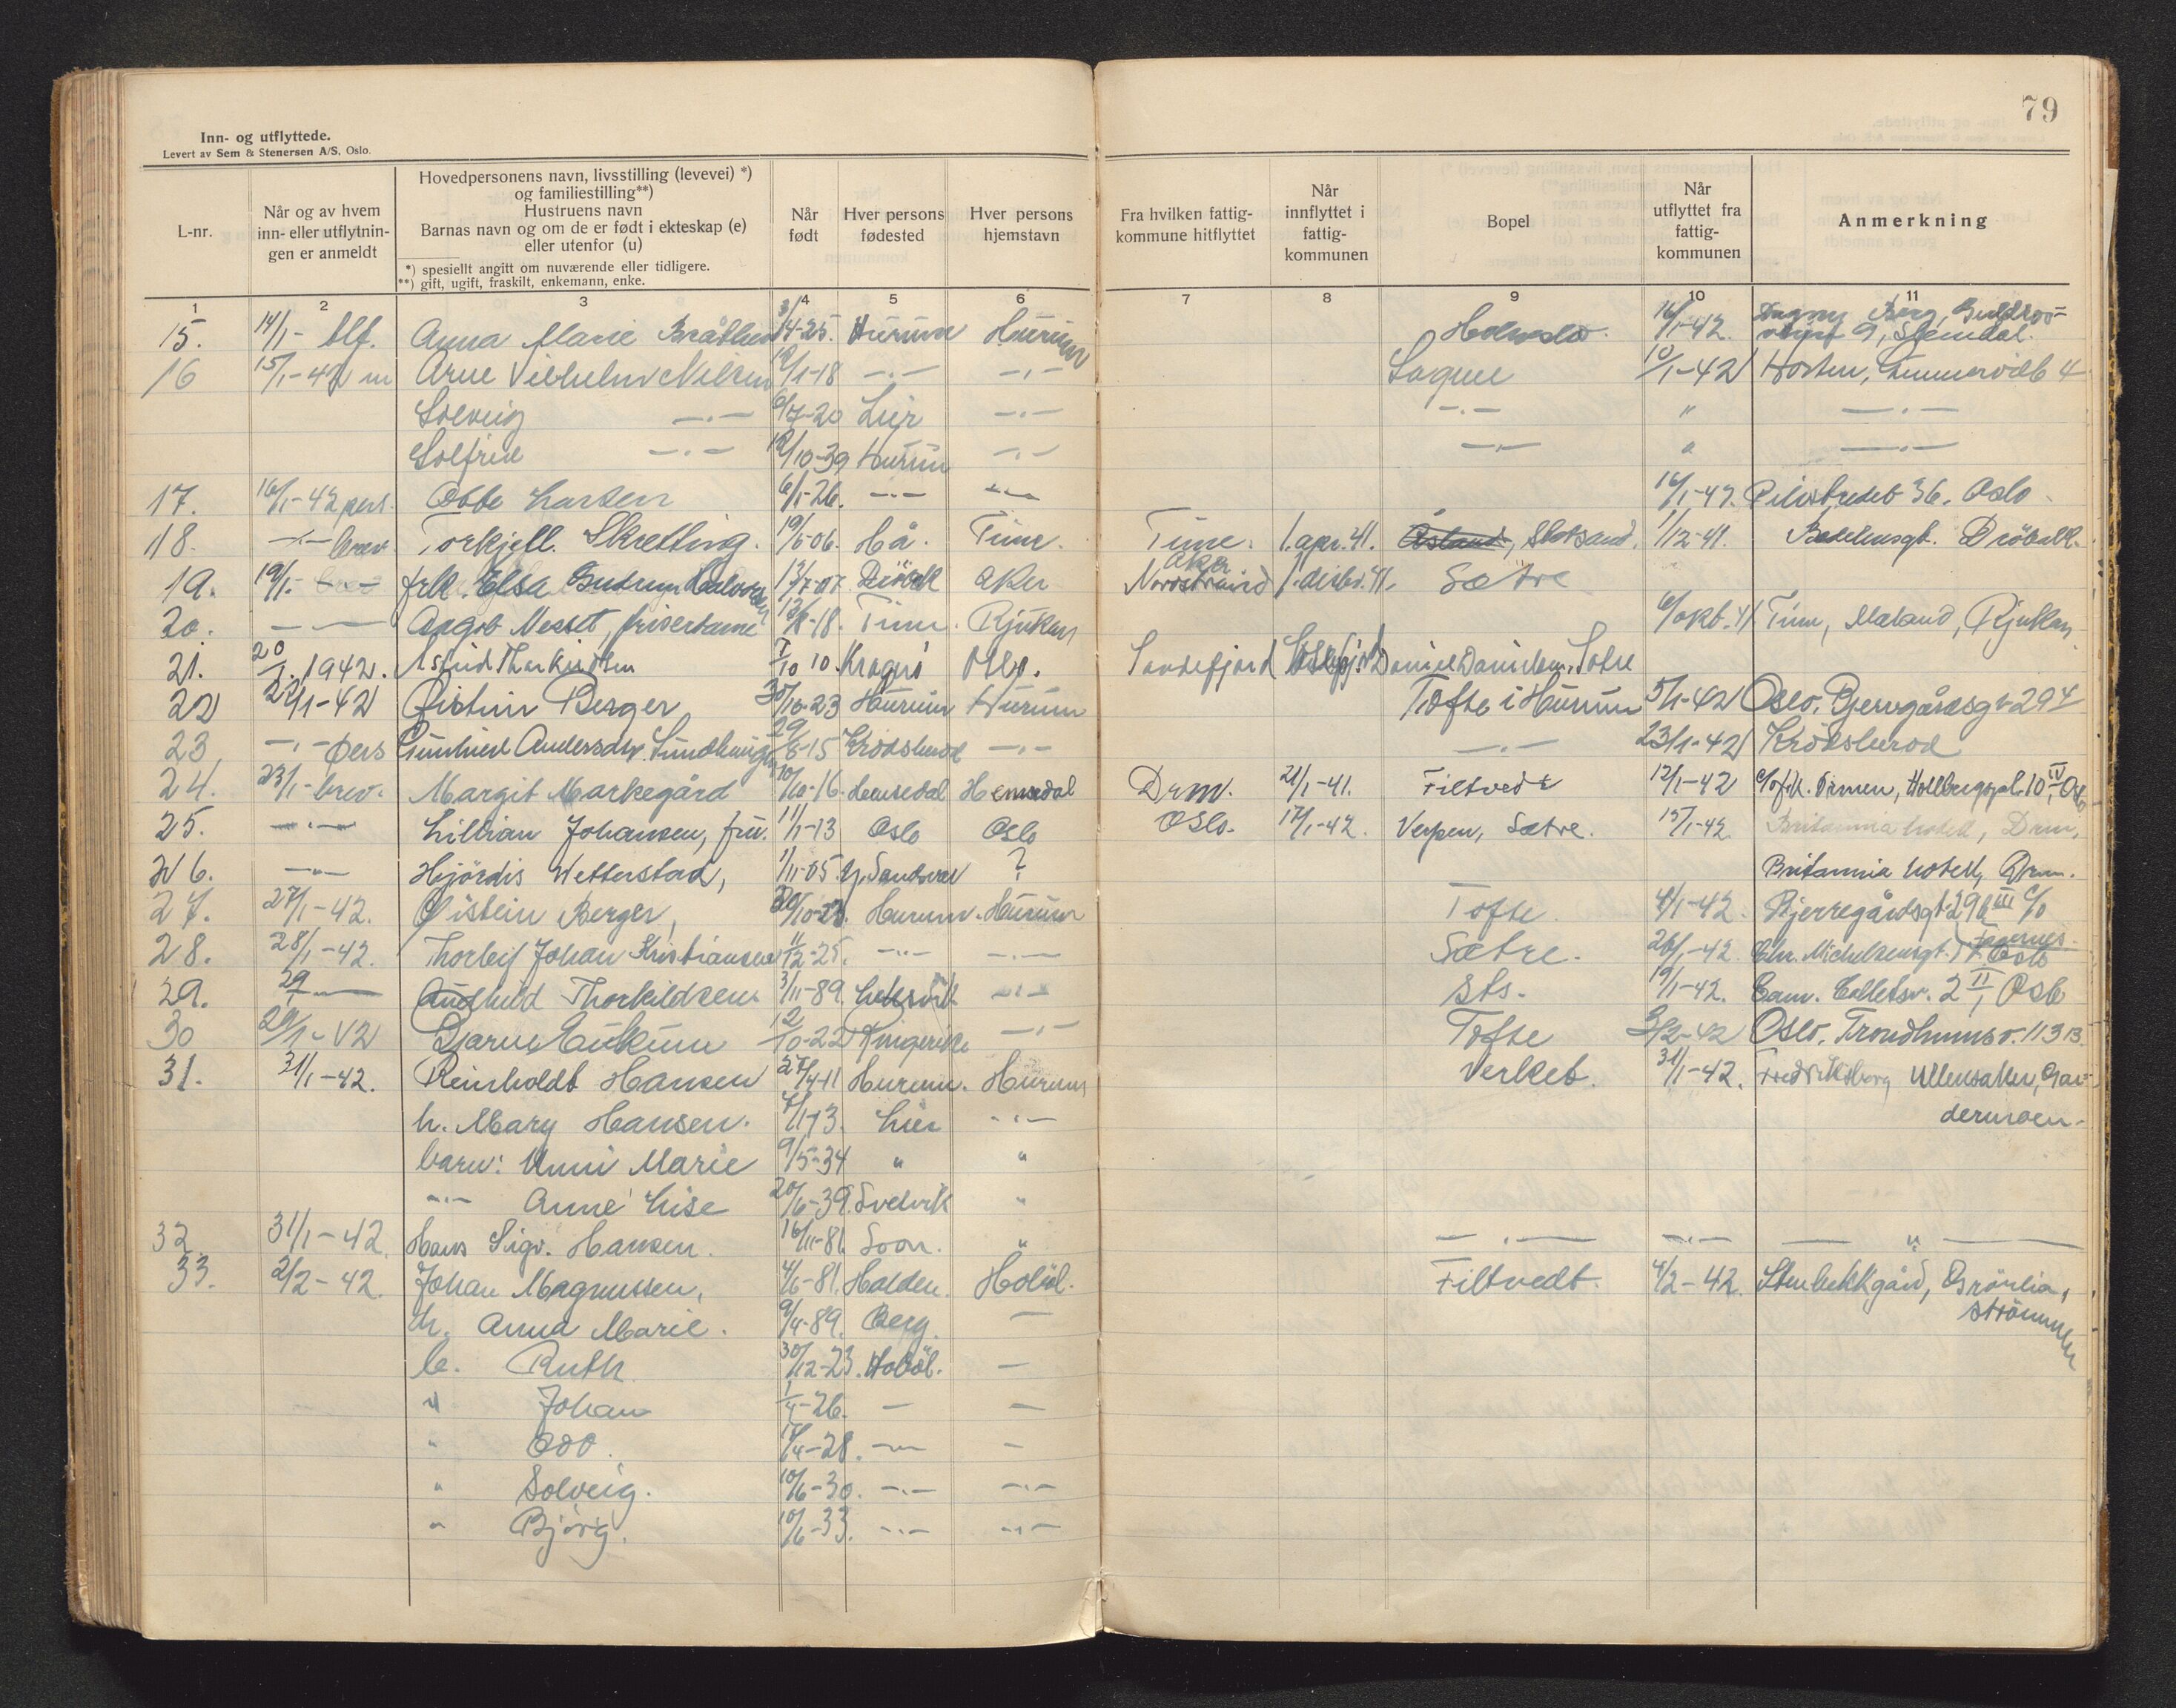 79
Inn- og utflyttede.
Levert av Sem & Stenersen A/S, Oslo.
L-nr.
Når og av hvem
inn- eller utflytnin-
gen er anmeldt
Hovedpersonens navn, livsstilling (levevei) *)
og familiestilling**)
Hustruens navn
Barnas navn og om de er født i ekteskap (e)
eller utenfor (u)
*) spesiellt angitt om nuværende eller tidligere.
**) gift, ugift, fraskilt, enkemann, enke.
Når
født
Hver persons
fødested
Hver persons
hjemstavn
Fra hvilken fattig-
kommune hitflyttet
Når
innflyttet i
fattig-
kommunen
Bopel
Når
utflyttet fra
fattig-
kommunen
Anmerkning
1 2 3 4 5 6 7 8 9 10 11
15. 14/1- tlf. Anna Marie Bråthen 3/4-25. Hurum Hurum 16/1-42. Dagny Berg, 9, Slemdal.
16 15/1-42 m Arne Vilhelm Nilsen 12/1-18 -"- -"- Sagene 10/1-42 Horten, 4
Solveig -"- 6/7-20 Lier -"- -"- " -"-
Solfrid -"- 12/10-39 Hurum -"- -"- " -"-
17. 16/1-42 pers. Ebbe Larsen 6/1-26. -"- -"- 16/1-42. Pilestredet 36, Oslo
18. -"- brev. Torkjell Skretting. 19/6-06. Hå. Time. Time. 1. apr. 41. Åsland, Slotsand. 1/12-41. Drøbak.
19. 19/1- brev frk. Elsa Gudrun Halvorsen 13/7-07. Drøbak Aker Aker Nordstrand 1. desbr. 41. Sætre
20. -"- Aagot Messet, friserdame 12/8-18. Tinn. Rjukan 6/okt. 41 Tinn, Mæland, Rjukan
21. 20/1. 1942. Astrid Thorkildsen 7/10 10. Kragerø Oslo. Sandefjord Daniel Danielsen, Sætre
22 22/1-42 Øistein Berger 30/10-23 Hurum Hurum Tofte i Hurum 5/1-42 Oslo, Bjerregårdsgt 29
23 -"- pers Gunhild Andersdtr. Sundhaugen 29/8-15 Krødsherod -"- -"- 23/1-42 Krødsherod
24. 23/1- brev. Margit Markegård 10/10-16. Hemsedal Hemsedal Drm. 21/1-41. Filtvedt 12/1-42 c/o frk. Holbergspl. 10 IV, Oslo
25. -"- Lillian Johansen, fru. 11/1-13 Oslo Oslo Oslo. 17/1-42. Verpen, Sætre. 15/1-42. Britannia hotell, Drm.
26. -"- Hjördis Wetterstad, 1/11-05. Y. Sandsvær ? Britannia hotell, Drm.
27. 27/1-42. Øistein Berger, 30/10-23. Hurum. Hurum Tofte. 4/1-42. Bjerregårdsgt 29b III c/o Fagernes.
28. 28/1-42. Thorleif Johan Kristiansen 11/12-25. -"- -"- Sætre. 26/1-42. Chr. Michelsensgt. 7. Oslo
29. 29/1 -"- Audhild Thorkildsen 3/11-89. Leksvik -"- Sts. 19/1-42. Cam. Colletsv. 2 II, Oslo
30 29/1-42 Bjarne 12/10-22 Ringerike -"- Tofte 2/2-42 Oslo, Trondheimsv. 113 B.
31. 31/1-42. Reinholdt Hansen 27/4-11 Hurum. Hurum Verket. 31/1-42. Fredriksborg Ullensaker, Gar-
dermoen.
h. Mary Hansen. 7/1-13. Lier -"-
barn: Unni Marie 9/5-34 " "
-"- Anne Lise 20/6-39. Svelvik "
32 31/1-42. Hans Sigv. Hansen. 16/11-81. Soon. " -"- -"- -"-
33. 2/2-42. Johan Magnussen. 4/6-81. Halden. Hobøl. Filtvedt. 4/2-42. Stenbekkgård, Grönlia,
Strömmen
h. Anna Marie. 9/4-89. Berg. -
b. Ruth 30/12-23. Hobøl. -
" Johan 1/4-26. - -
" Odd. 17/4-28. -"- -
" Solveig. 10/6-30. -"- -"-
" Bjørg. 10/6-33. -"- -"-